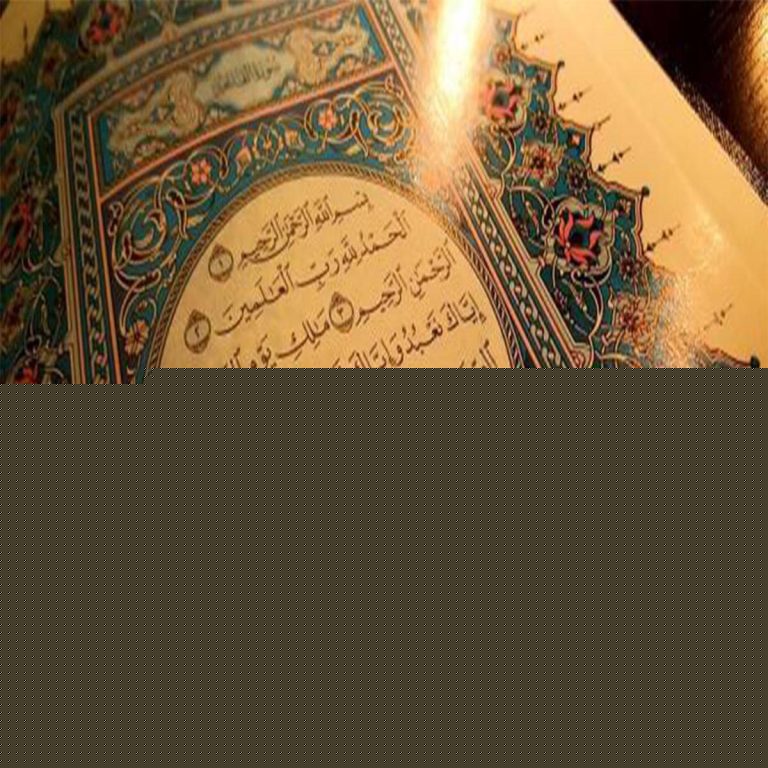 سُورَةُ الْفَاتِحَةِ
بِسْمِ ٱللَّهِ ٱلرَّحْمَٰنِ ٱلرَّحِيمِ ١
ٱلْحَمْدُ لِلَّهِ رَبِّ ٱلْعَٰلَمِينَ ٢
ٱلرَّحْمَٰنِ ٱلرَّحِيمِ ٣ مَٰلِكِ يَوْمِ
إِيَّاكَ نَعْبُدُ وَإِيَّاكَ